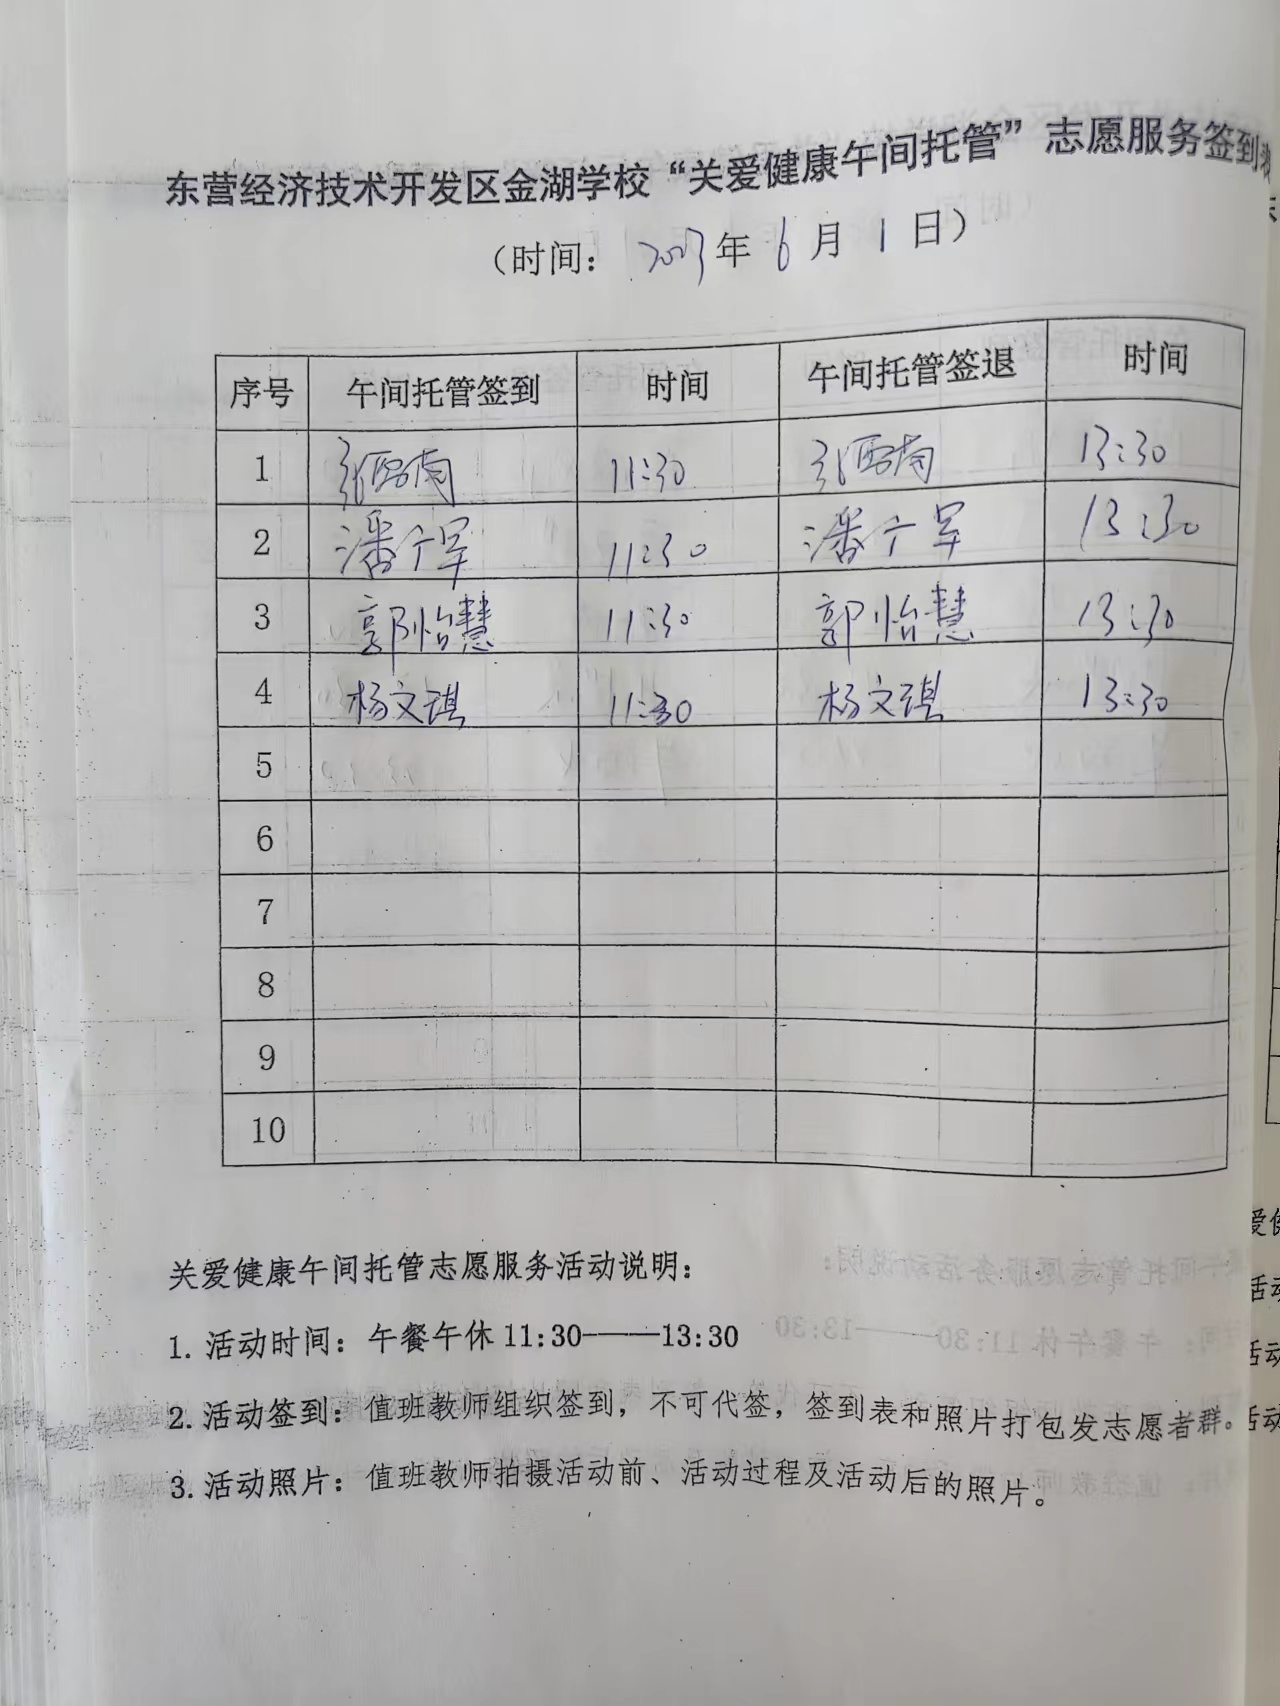 东营经济技术开发区金湖学校“关爱健康午间托管”志愿服务签到表
（时间：2023年6月1日）
序号 午间托管签到 时间 午间托管签退 时间
1 张西南 11:30 张西南 13:30
2 潘广军 11:30 潘广军 13:30
3 郭怡慧 11:30 郭怡慧 13:30
4 杨文琪 11:30 杨文琪 13:30
5
6
7
8
9
10
关爱健康午间托管志愿服务活动说明：
1. 活动时间：午餐午休 11:30——13:30
2. 活动签到：值班教师组织签到，不可代签，签到表和照片打包发志愿者群。
3. 活动照片：值班教师拍摄活动前、活动过程及活动后的照片。